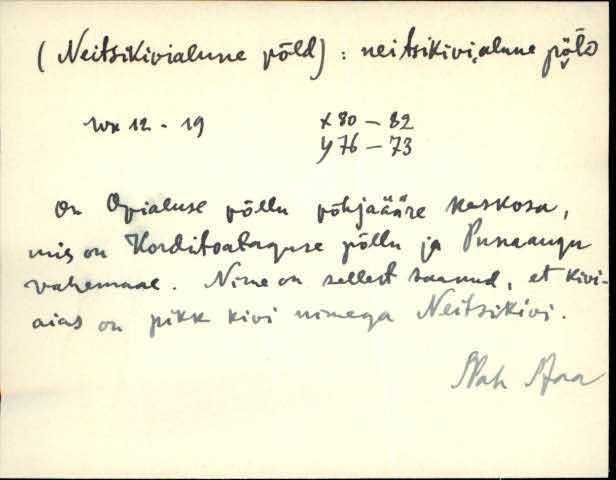 (Neitsikivialune põld) : neitsikivi,alune põlD
wn 12 - 19 x 80 – 82
y 76 – 73
On Opialuse põllu põhjaääre keskosa,
mis on Korditoataguse põllu ja Punaaugu
vahemaal. Nime on sellest saanud, et kivi-
aias on pikk kivi nimega Neitsikivi.